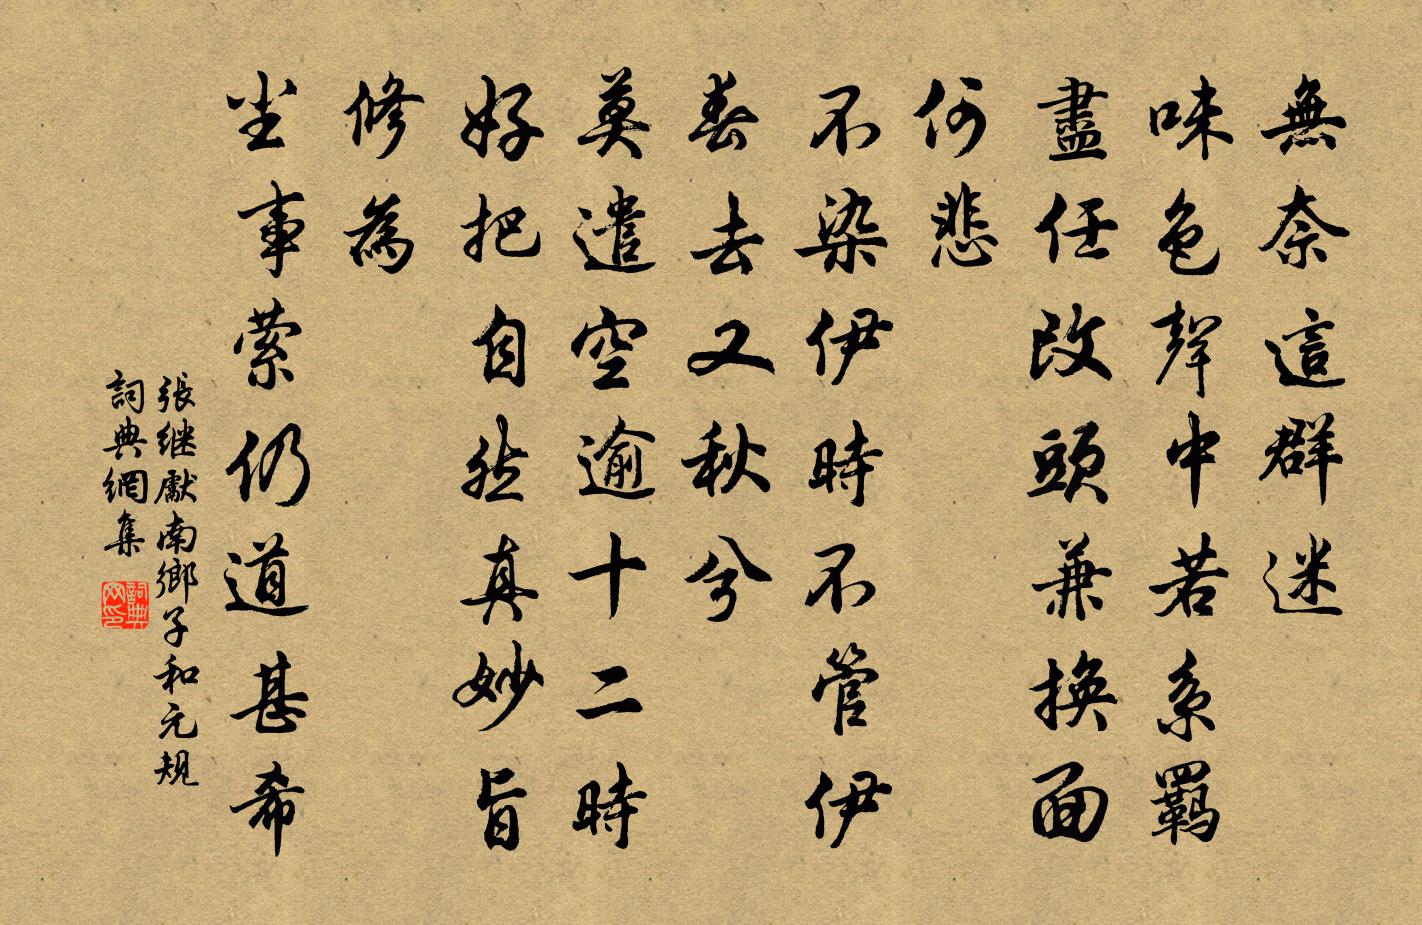 無奈這群迷
味色聲中若系羈
盡任改頭兼換面
何悲
不染伊時不管伊
春去又秋兮
莫遣空逾十二時
好把自然真妙旨
修為
尘事萦仍道甚希
張继獻南鄉子和元規
詞典網集
詞典網印